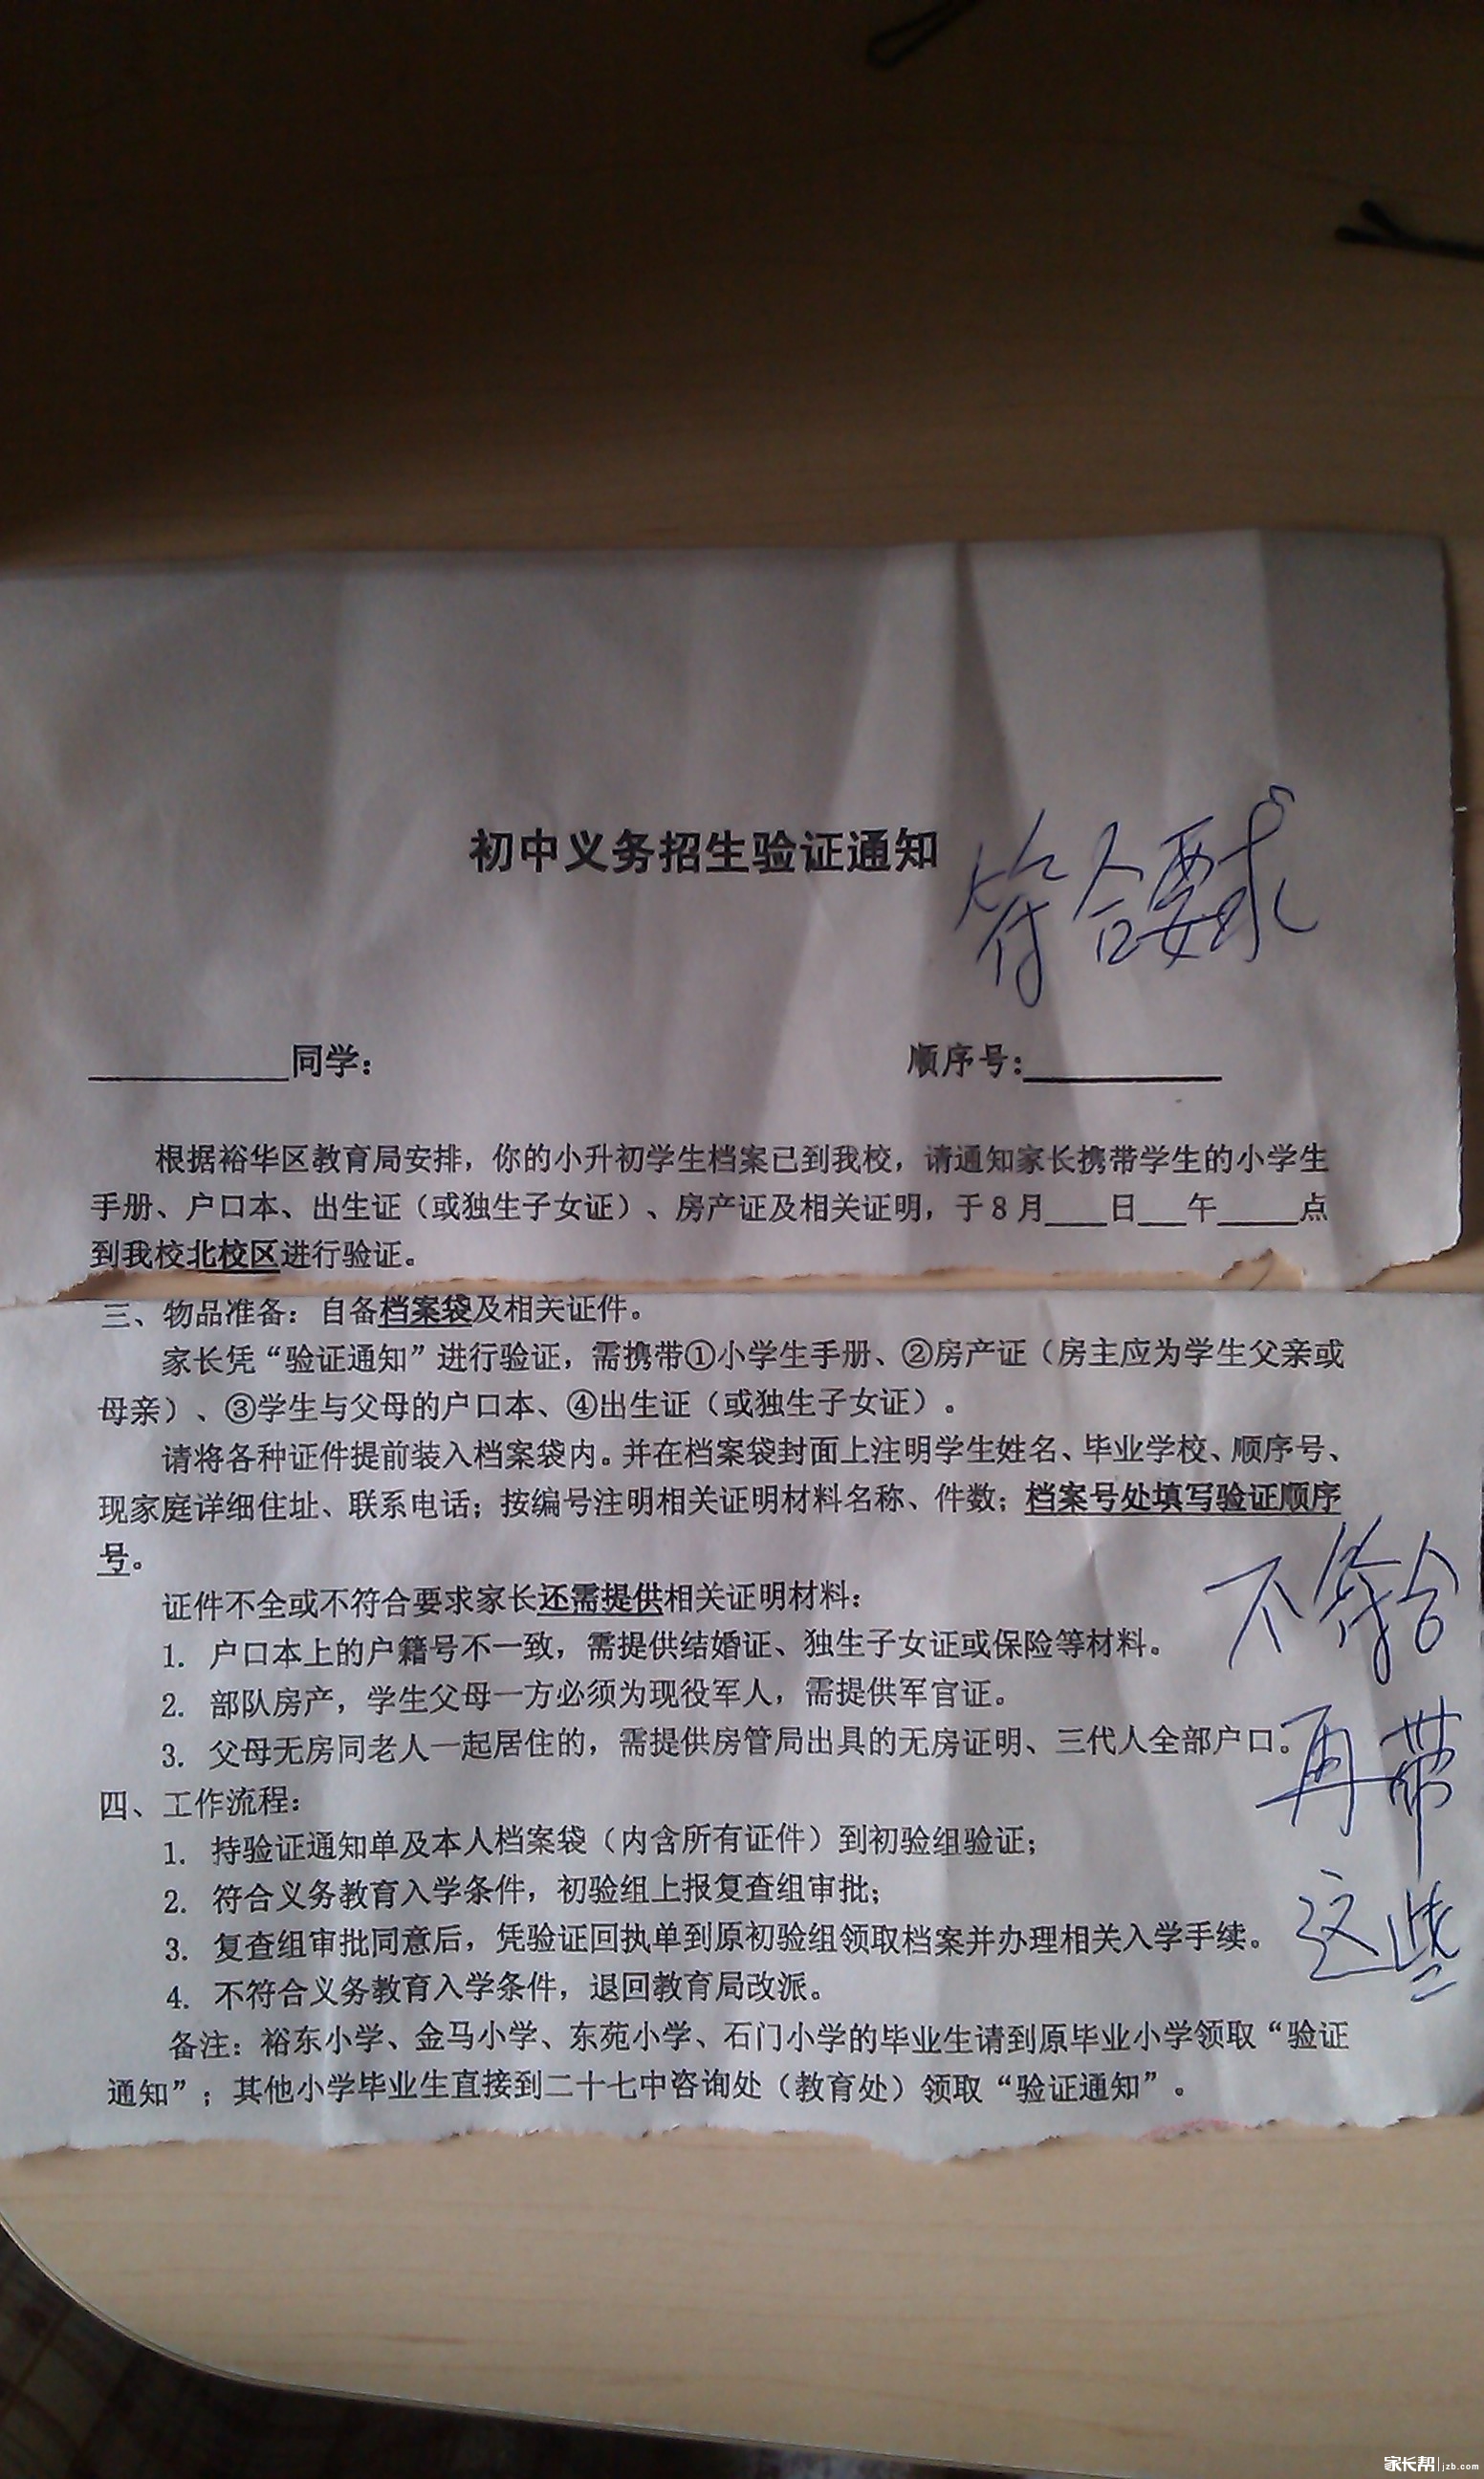 初中义务招生验证通知 符合要求
__________同学： 顺序号：__________
根据裕华区教育局安排，你的小升初学生档案已到我校，请通知家长携带学生的小学生
手册、户口本、出生证（或独生子女证）、房产证及相关证明，于8月____日___午_____点
到我校北校区进行验证。
三、物品准备：自备档案袋及相关证件。
家长凭“验证通知”进行验证，需携带①小学生手册、②房产证（房主应为学生父亲或
母亲）、③学生与父母的户口本、④出生证（或独生子女证）。
请将各种证件提前装入档案袋内。并在档案袋封面上注明学生姓名、毕业学校、顺序号、
现家庭详细住址、联系电话；按编号注明相关证明材料名称、件数；档案号处填写验证顺序
号。
证件不全或不符合要求家长还需提供相关证明材料：
1. 户口本上的户籍号不一致，需提供结婚证、独生子女证或保险等材料。
2. 部队房产，学生父母一方必须为现役军人，需提供军官证。
3. 父母无房同老人一起居住的，需提供房管局出具的无房证明、三代人全部户口。
不符合
再带
这些
四、工作流程：
1. 持验证通知单及本人档案袋（内含所有证件）到初验组验证；
2. 符合义务教育入学条件，初验组上报复查组审批；
3. 复查组审批同意后，凭验证回执单到原初验组领取档案并办理相关入学手续。
4. 不符合义务教育入学条件，退回教育局改派。
备注：裕东小学、金马小学、东苑小学、石门小学的毕业生请到原毕业小学领取“验证
通知”；其他小学毕业生直接到二十七中咨询处（教育处）领取“验证通知”。
家长帮 jzb.com